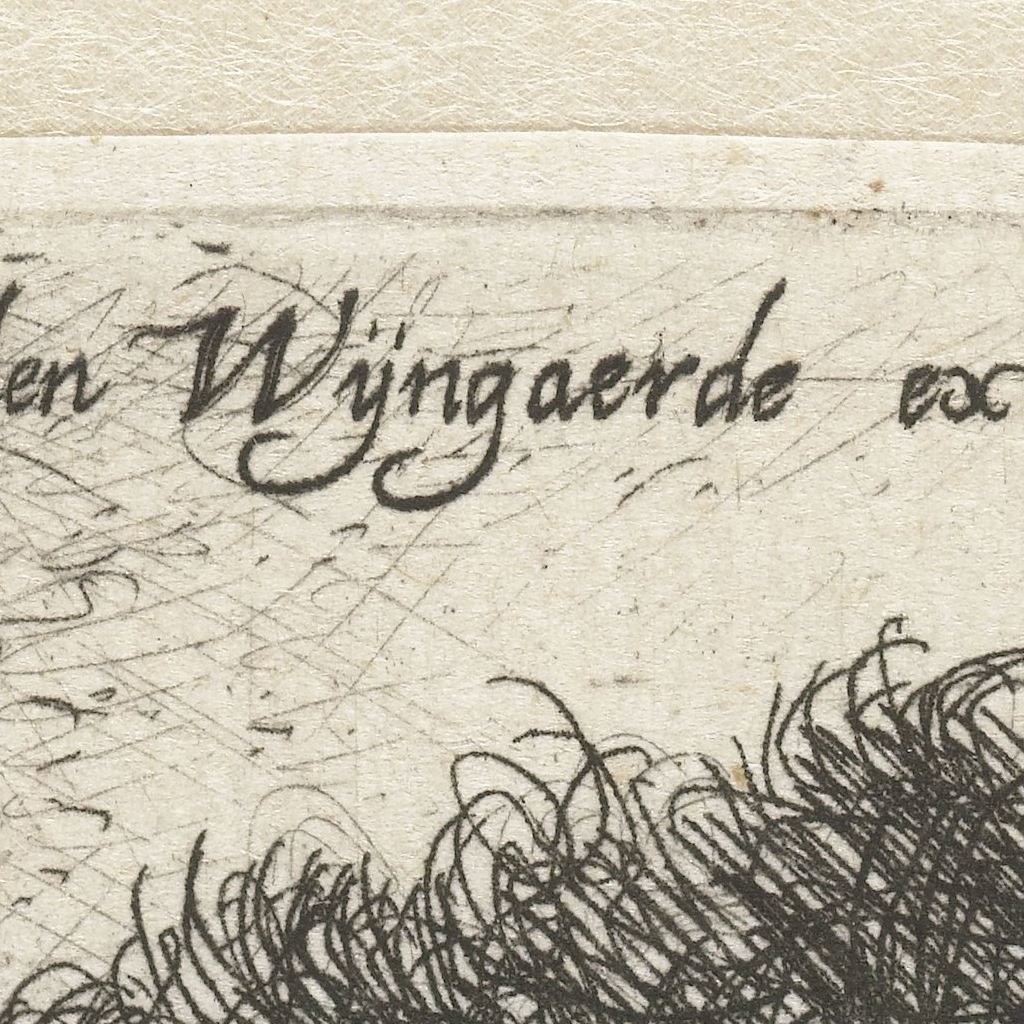 den Wijngaerde ex